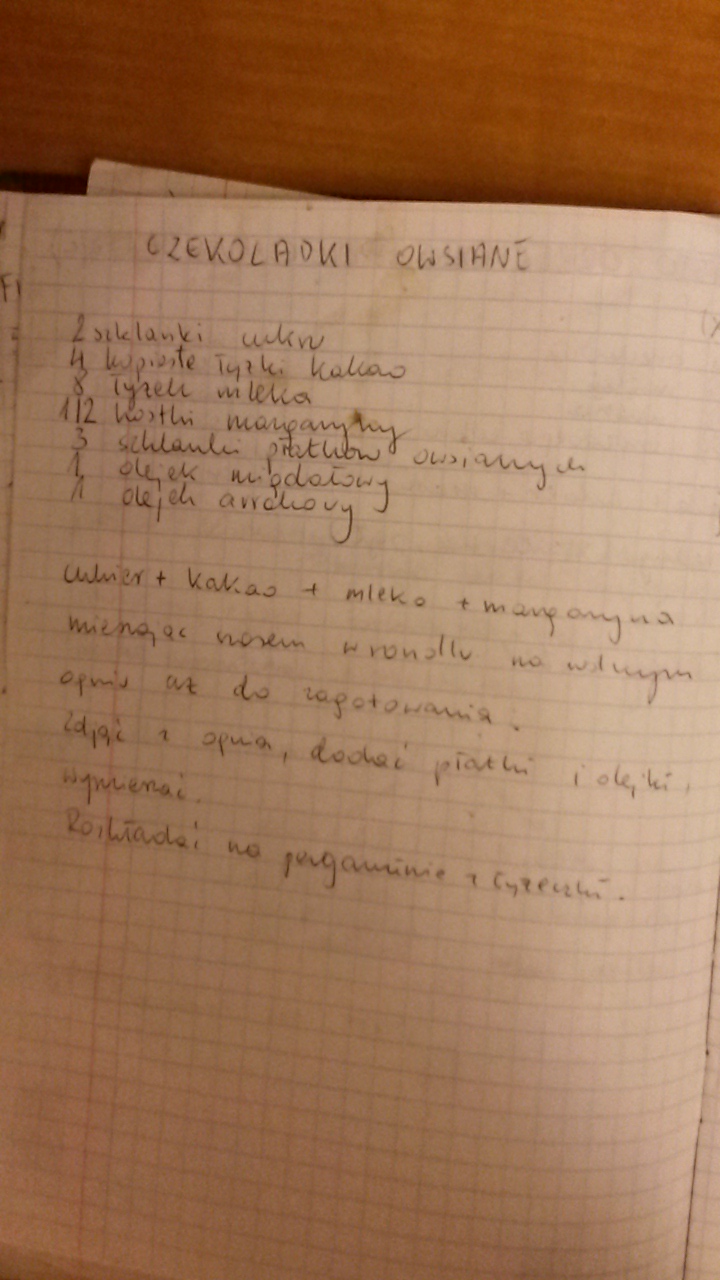 CZEKOLADKI OWSIANE
2 szklanki cukru
4 kopiaste łyżki kakao
8 łyżek mleka
1/2 kostki margaryny
3 szklanki płatków owsianych
1 olejek migdałowy
1 olejek arrakowy
cukier + kakao + mleko + margaryna
mieszając razem w rondlu na wolnym
ogniu aż do zagotowania.
Zdjąć z ognia, dodać płatki i olejki,
wymieszać.
Rozkładać na pergaminie z łyżeczki.